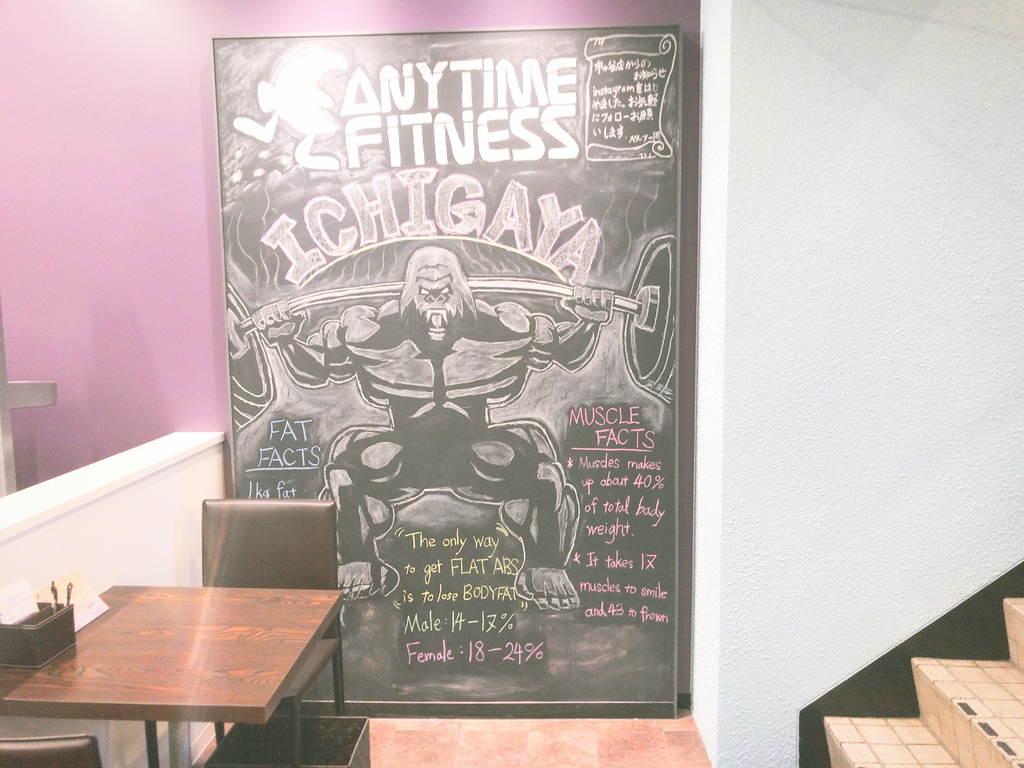 ANYTIME
FITNESS
市ヶ谷店からの
お知らせ
instagramをはじ
めました。お気軽
にフォローお願
いします。
ICHIGAYA
FAT
FACTS
1kg fat
MUSCLE
FACTS
* Muscles makes
up about 40%
of total body
weight.
* It takes 17
muscles to smile
and 43 to frown
"The only way
to get FLAT ABS
is to lose BODYFAT"
Male: 14-17%
Female: 18-24%